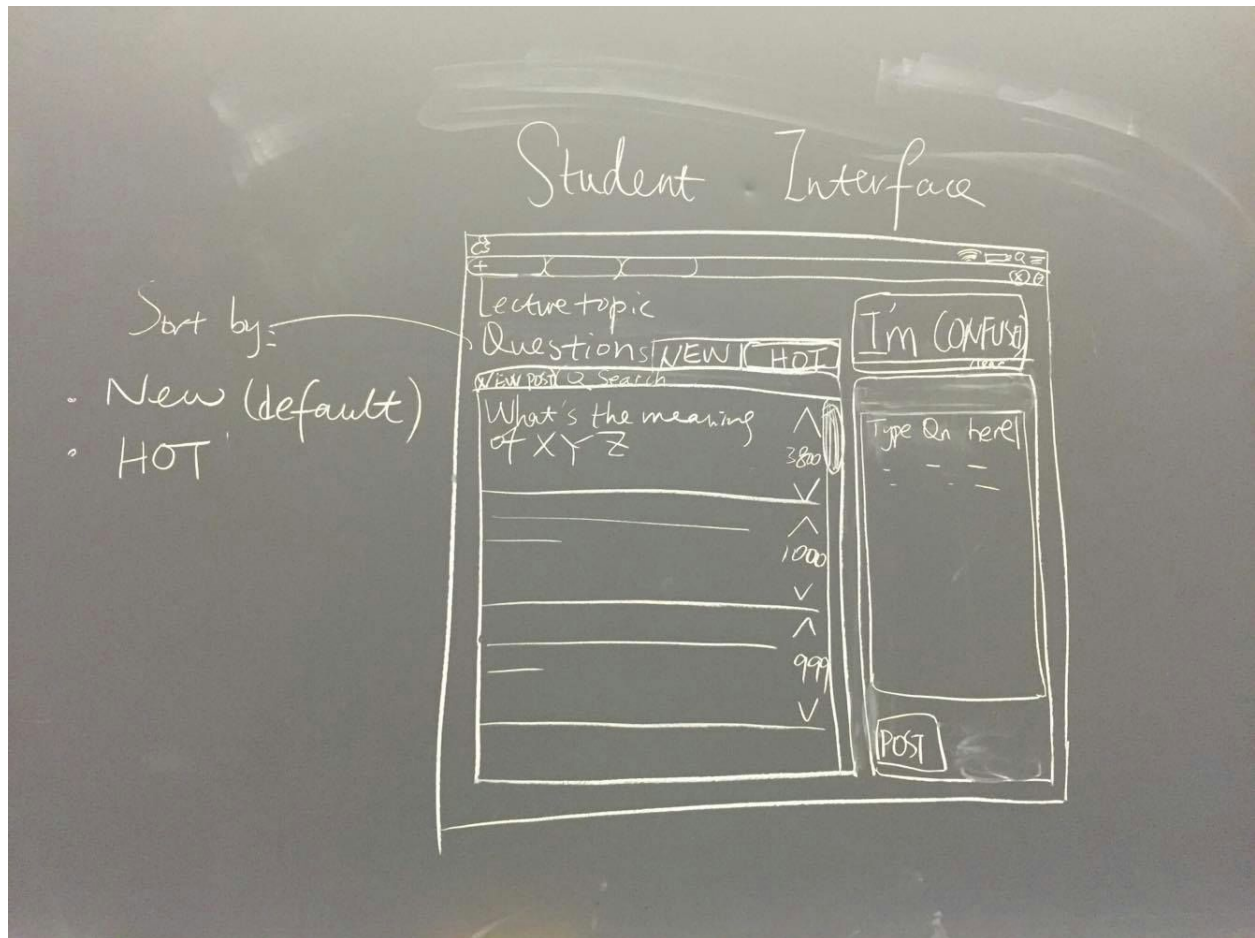 Student Interface
Sort by:
New (default)
HOT
Lecture topic
Questions NEW HOT
NEW POST Search
What's the meaning
of X Y Z
3800
1000
999
I'm CONFUSED
Type Qn here
POST